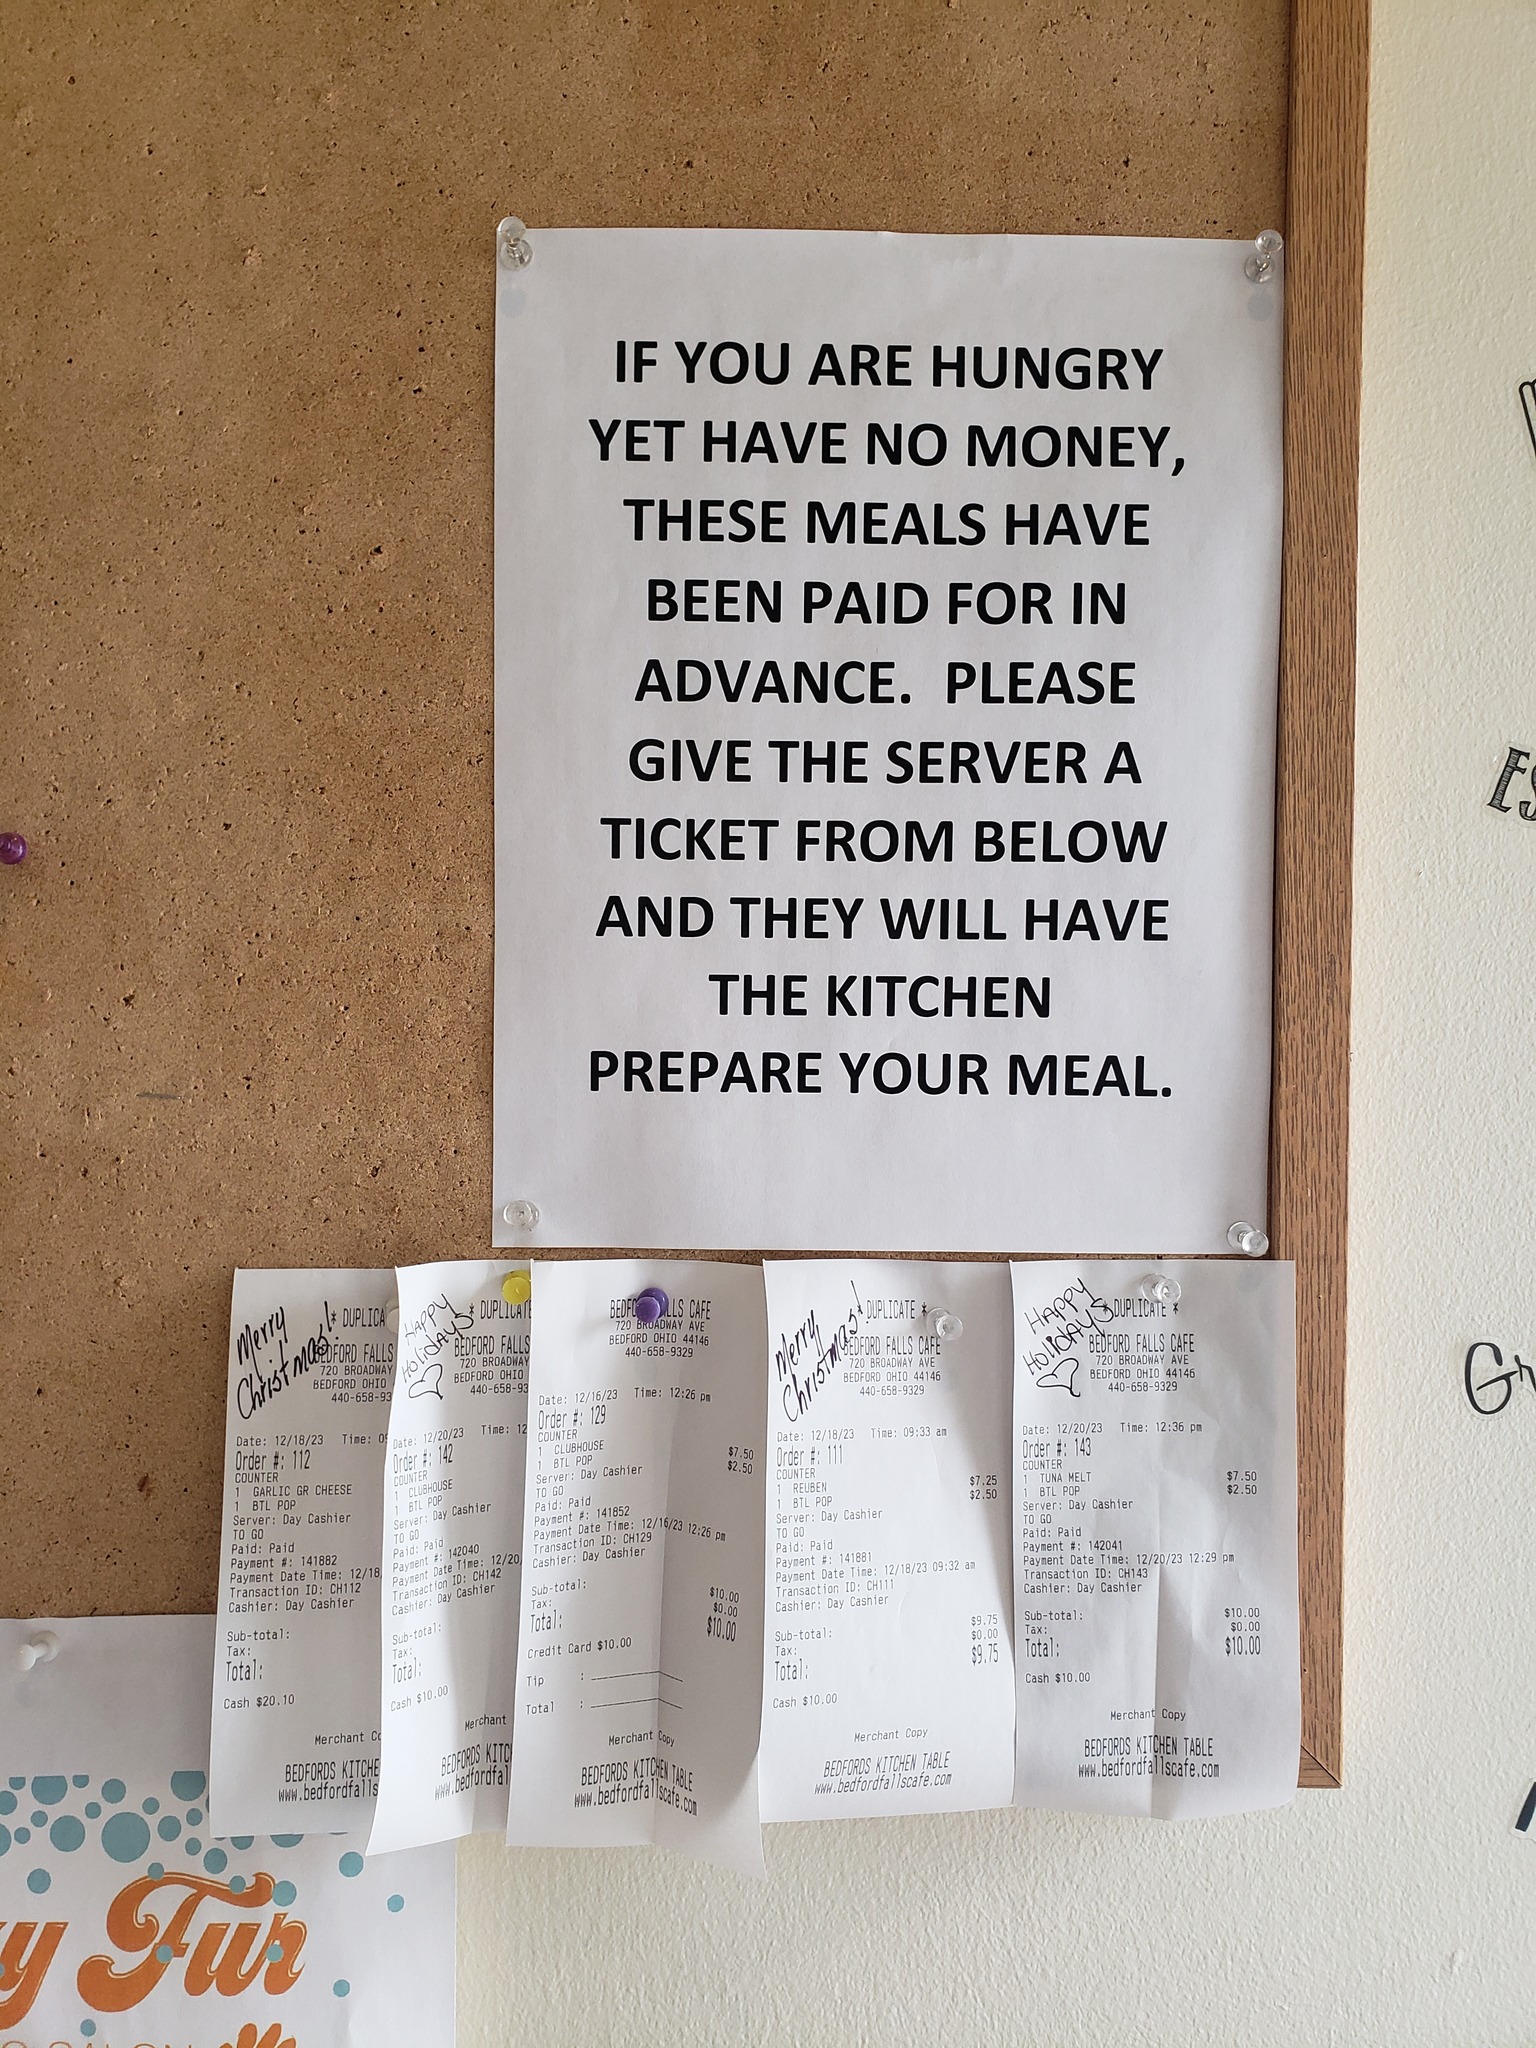 IF YOU ARE HUNGRY
YET HAVE NO MONEY,
THESE MEALS HAVE
BEEN PAID FOR IN
ADVANCE. PLEASE
GIVE THE SERVER A
TICKET FROM BELOW
AND THEY WILL HAVE
THE KITCHEN
PREPARE YOUR MEAL.
Merry
Christmas!
* DUPLICA
BEDFORD FALLS
720 BROADWAY
BEDFORD OHIO
440-658-93
Date: 12/18/23 Time: 09
Order #: 112
COUNTER
1 GARLIC GR CHEESE
1 BTL POP
Server: Day Cashier
TO GO
Paid: Paid
Payment #: 141882
Payment Date Time: 12/18
Transaction ID: CH112
Cashier: Day Cashier
Sub-total:
Tax:
Total:
Cash $20.10
Merchant Co
BEDFORDS KITCHEN
www.bedfordfalls
HAPPY
HOLiDAYS
* DUPLICATE
BEDFORD FALLS
720 BROADWAY
BEDFORD OHIO
440-658-93
Date: 12/20/23 Time: 12
Order #: 142
COUNTER
1 CLUBHOUSE
1 BTL POP
Server: Day Cashier
TO GO
Paid: Paid
Payment #: 142040
Payment Date Time: 12/20
Transaction ID: CH142
Cashier: Day Cashier
Sub-total:
Tax:
Total:
Cash $10.00
Merchant
BEDFORDS KITC
www.bedfordfal
BEDFORD FALLS CAFE
720 BROADWAY AVE
BEDFORD OHIO 44146
440-658-9329
Date: 12/16/23 Time: 12:26 pm
Order #: 129
COUNTER
1 CLUBHOUSE $7.50
1 BTL POP $2.50
Server: Day Cashier
TO GO
Paid: Paid
Payment #: 141852
Payment Date Time: 12/16/23 12:26 pm
Transaction ID: CH129
Cashier: Day Cashier
Sub-total: $10.00
Tax: $0.00
Total: $10.00
Credit Card $10.00
Tip :
Total :
Merchant Copy
BEDFORDS KITCHEN TABLE
www.bedfordfallscafe.com
Merry
Christmas!
* DUPLICATE *
BEDFORD FALLS CAFE
720 BROADWAY AVE
BEDFORD OHIO 44146
440-658-9329
Date: 12/18/23 Time: 09:33 am
Order #: 111
COUNTER
1 REUBEN $7.25
1 BTL POP $2.50
Server: Day Cashier
TO GO
Paid: Paid
Payment #: 141881
Payment Date Time: 12/18/23 09:32 am
Transaction ID: CH111
Cashier: Day Cashier
Sub-total: $9.75
Tax: $0.00
Total: $9.75
Cash $10.00
Merchant Copy
BEDFORDS KITCHEN TABLE
www.bedfordfallscafe.com
HAPPY
HOLiDAYS
* DUPLICATE *
BEDFORD FALLS CAFE
720 BROADWAY AVE
BEDFORD OHIO 44146
440-658-9329
Date: 12/20/23 Time: 12:36 pm
Order #: 143
COUNTER
1 TUNA MELT $7.50
1 BTL POP $2.50
Server: Day Cashier
TO GO
Paid: Paid
Payment #: 142041
Payment Date Time: 12/20/23 12:29 pm
Transaction ID: CH143
Cashier: Day Cashier
Sub-total: $10.00
Tax: $0.00
Total: $10.00
Cash $10.00
Merchant Copy
BEDFORDS KITCHEN TABLE
www.bedfordfallscafe.com
y Fur
SALON
ES
Gr